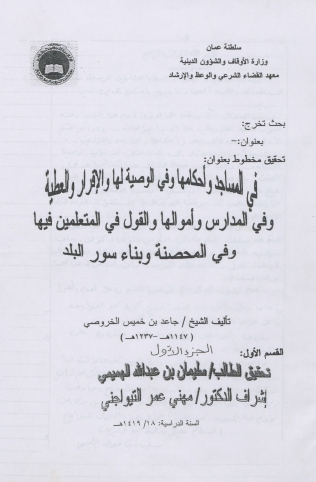 سلطنة عمان
وزارة الأوقاف والشؤون الدينية
معهد القضاء الشرعي والوعظ والإرشاد
بحث تخرج:
بعنوان:-
تحقيق مخطوط بعنوان:
في المساجد وأحكامها وفي الوصية لها والإقرار والعطية
وفي المدارس وأموالها والقول في المتعلمين فيها
وفي المحصنة وبناء سور البلد
تأليف الشيخ/ جاعد بن خميس الخروصي
(١١٤٧هـ -١٢٣٧هـ)
القسم الأول: الجزء الأول
تحقيق الطالب/ سليمان بن عبدالله الهميمي
إشراف الدكتور/ مهني عمر التيواجني
السنة الدراسية: ١٨/ ١٤١٩هـ